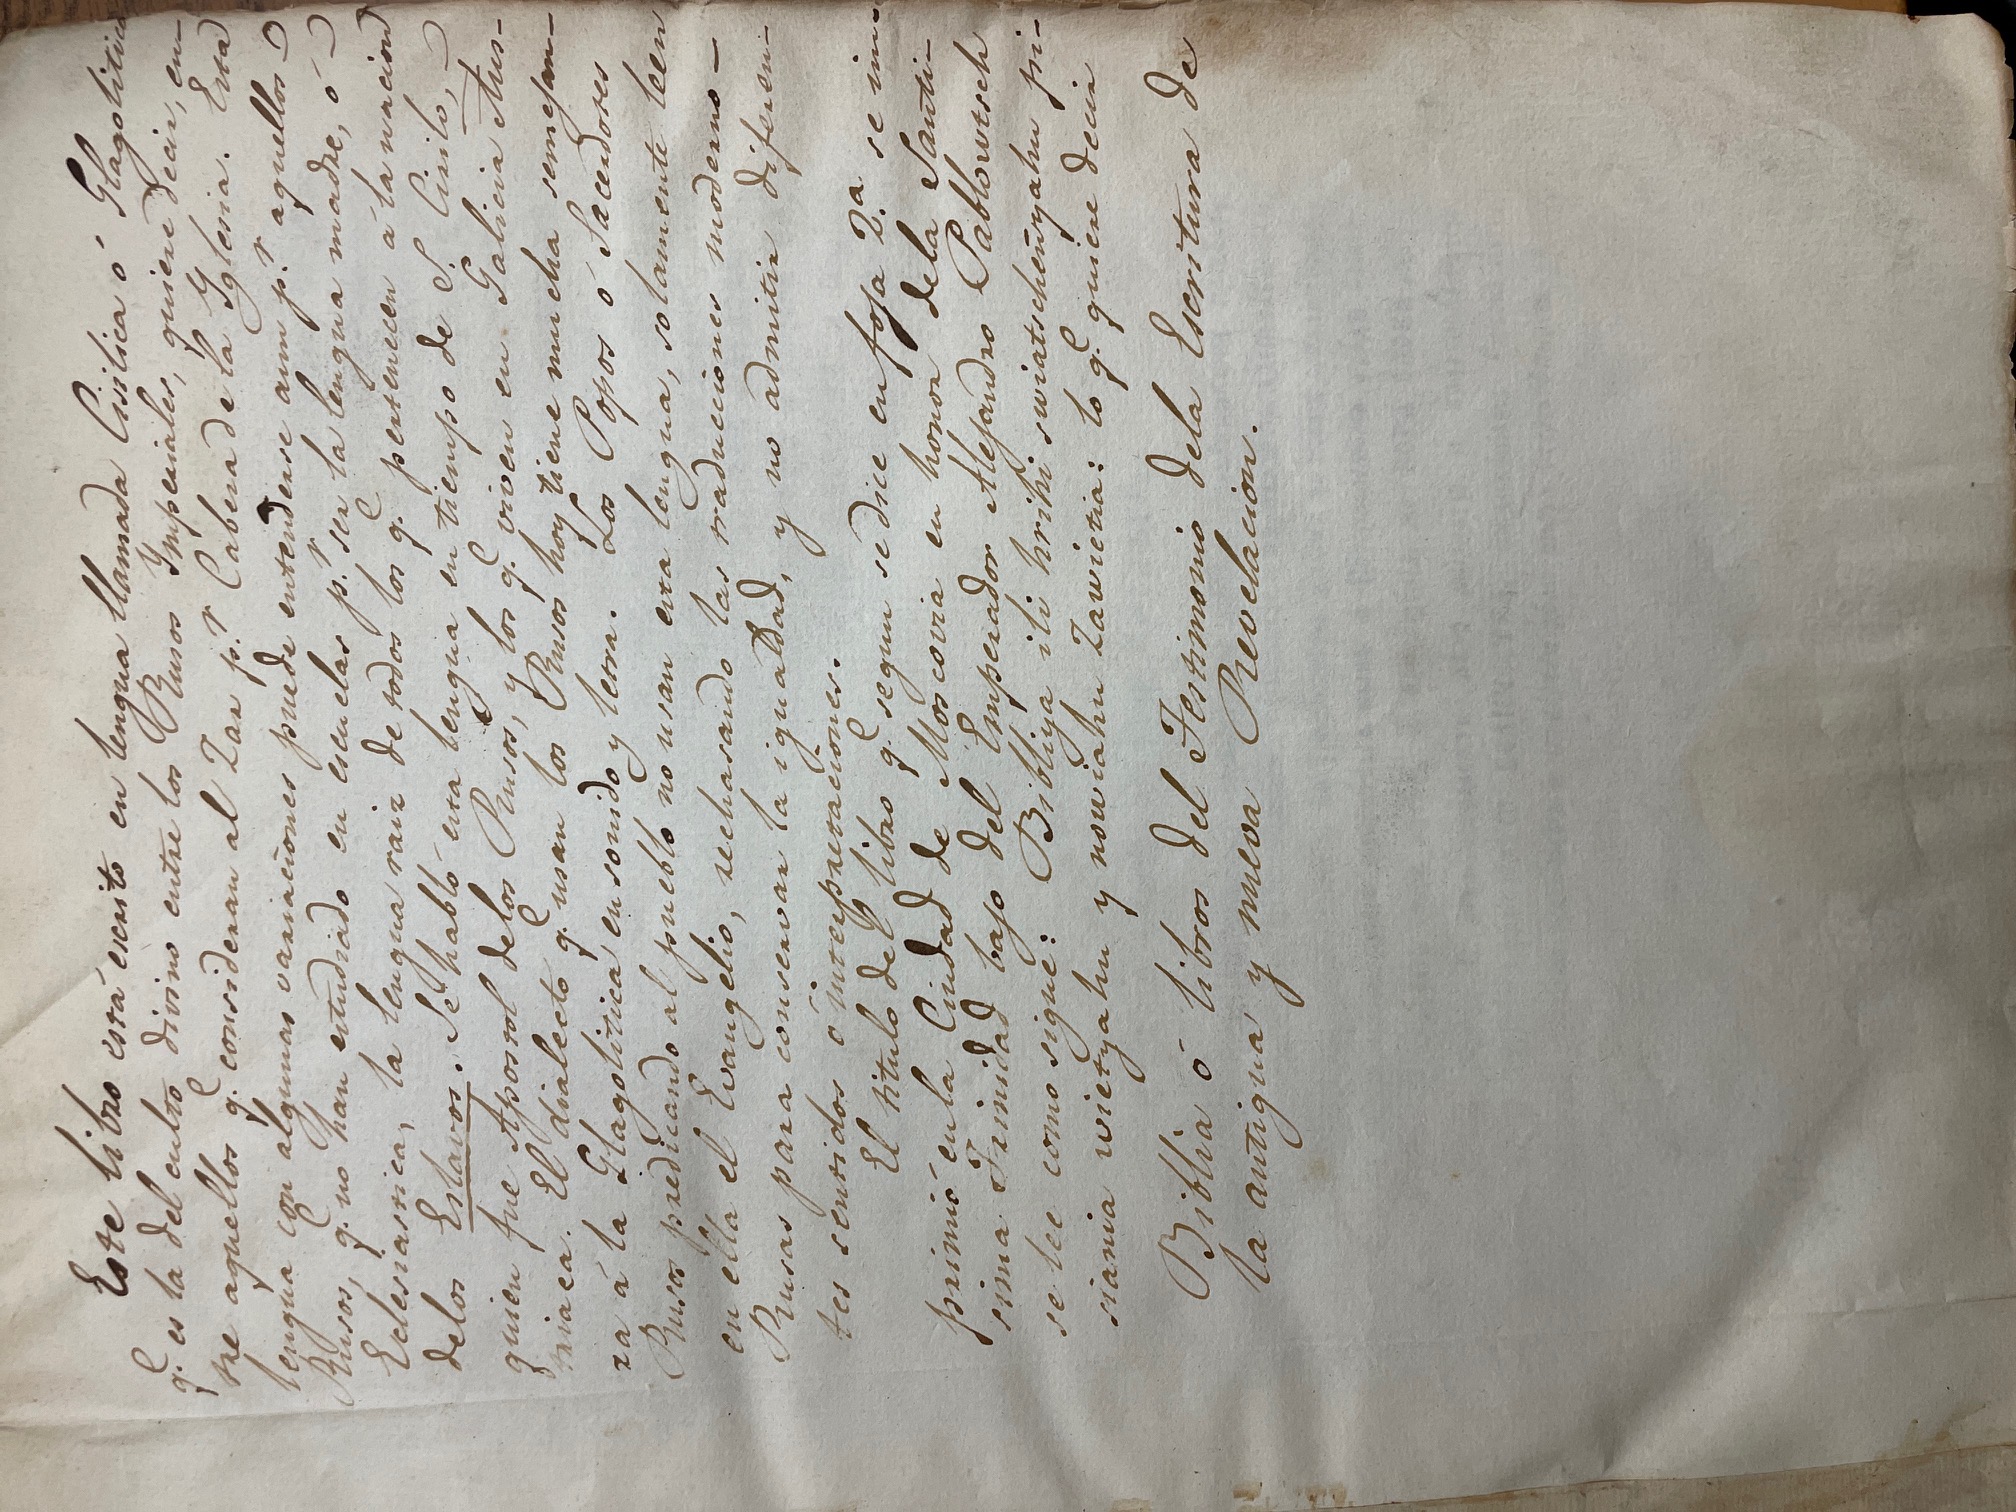 Este libro está escrito en lengua llamada Cirilica ó Glagolitica
q.e es la del culto divino entre los Rusos Ymperiales, quiere decir, en-
tre aquellos q.e consideran al Zar p.r Cabeza de la Yglesia. Esta
lengua con algunas variaciones puede entenderse aun p.r aquellos
Rusos, q.e no han estudiado en escuelas p.r ser la lengua madre, ó
Eclesiastica, la lengua raiz de todos los q.e pertenecen á la nacion
delos Eslavos. Se habló esta lengua en tiempo de S. Cirilo,
quien fue Apostol delos Rusos, y los q.e viven en Galicia Aus-
triaca. El dialecto q.e usan los Rusos hoy tiene mucha semejan-
za á la Glagolitica, en sonido y letra. Los Popos ó Sacerdotes
Rusos predicando al pueblo no usan esta lengua, solamente leen
en ella el Evangelio, rechasando las traducciones modernо-
Rusas para conservar la igualdad, y no admitir diferen-
tes sentidos ó interpretaciones.
El titulo del libro q.e segun se dice en foja 2.a se im-
primió en la Ciudad de Moscovia en honor dela Santi-
sima Trinidad bajo del Emperador Alejandro Pablowtsch
se lee como sigue: Bibliya ili hrihi swiatschenyahu pi-
siania wietyahu y nowiahu Zawietia: lo q.e quiere decir
Biblia ó libros del Testimonio dela Escritura de
la antigua y nueva Revelacion.